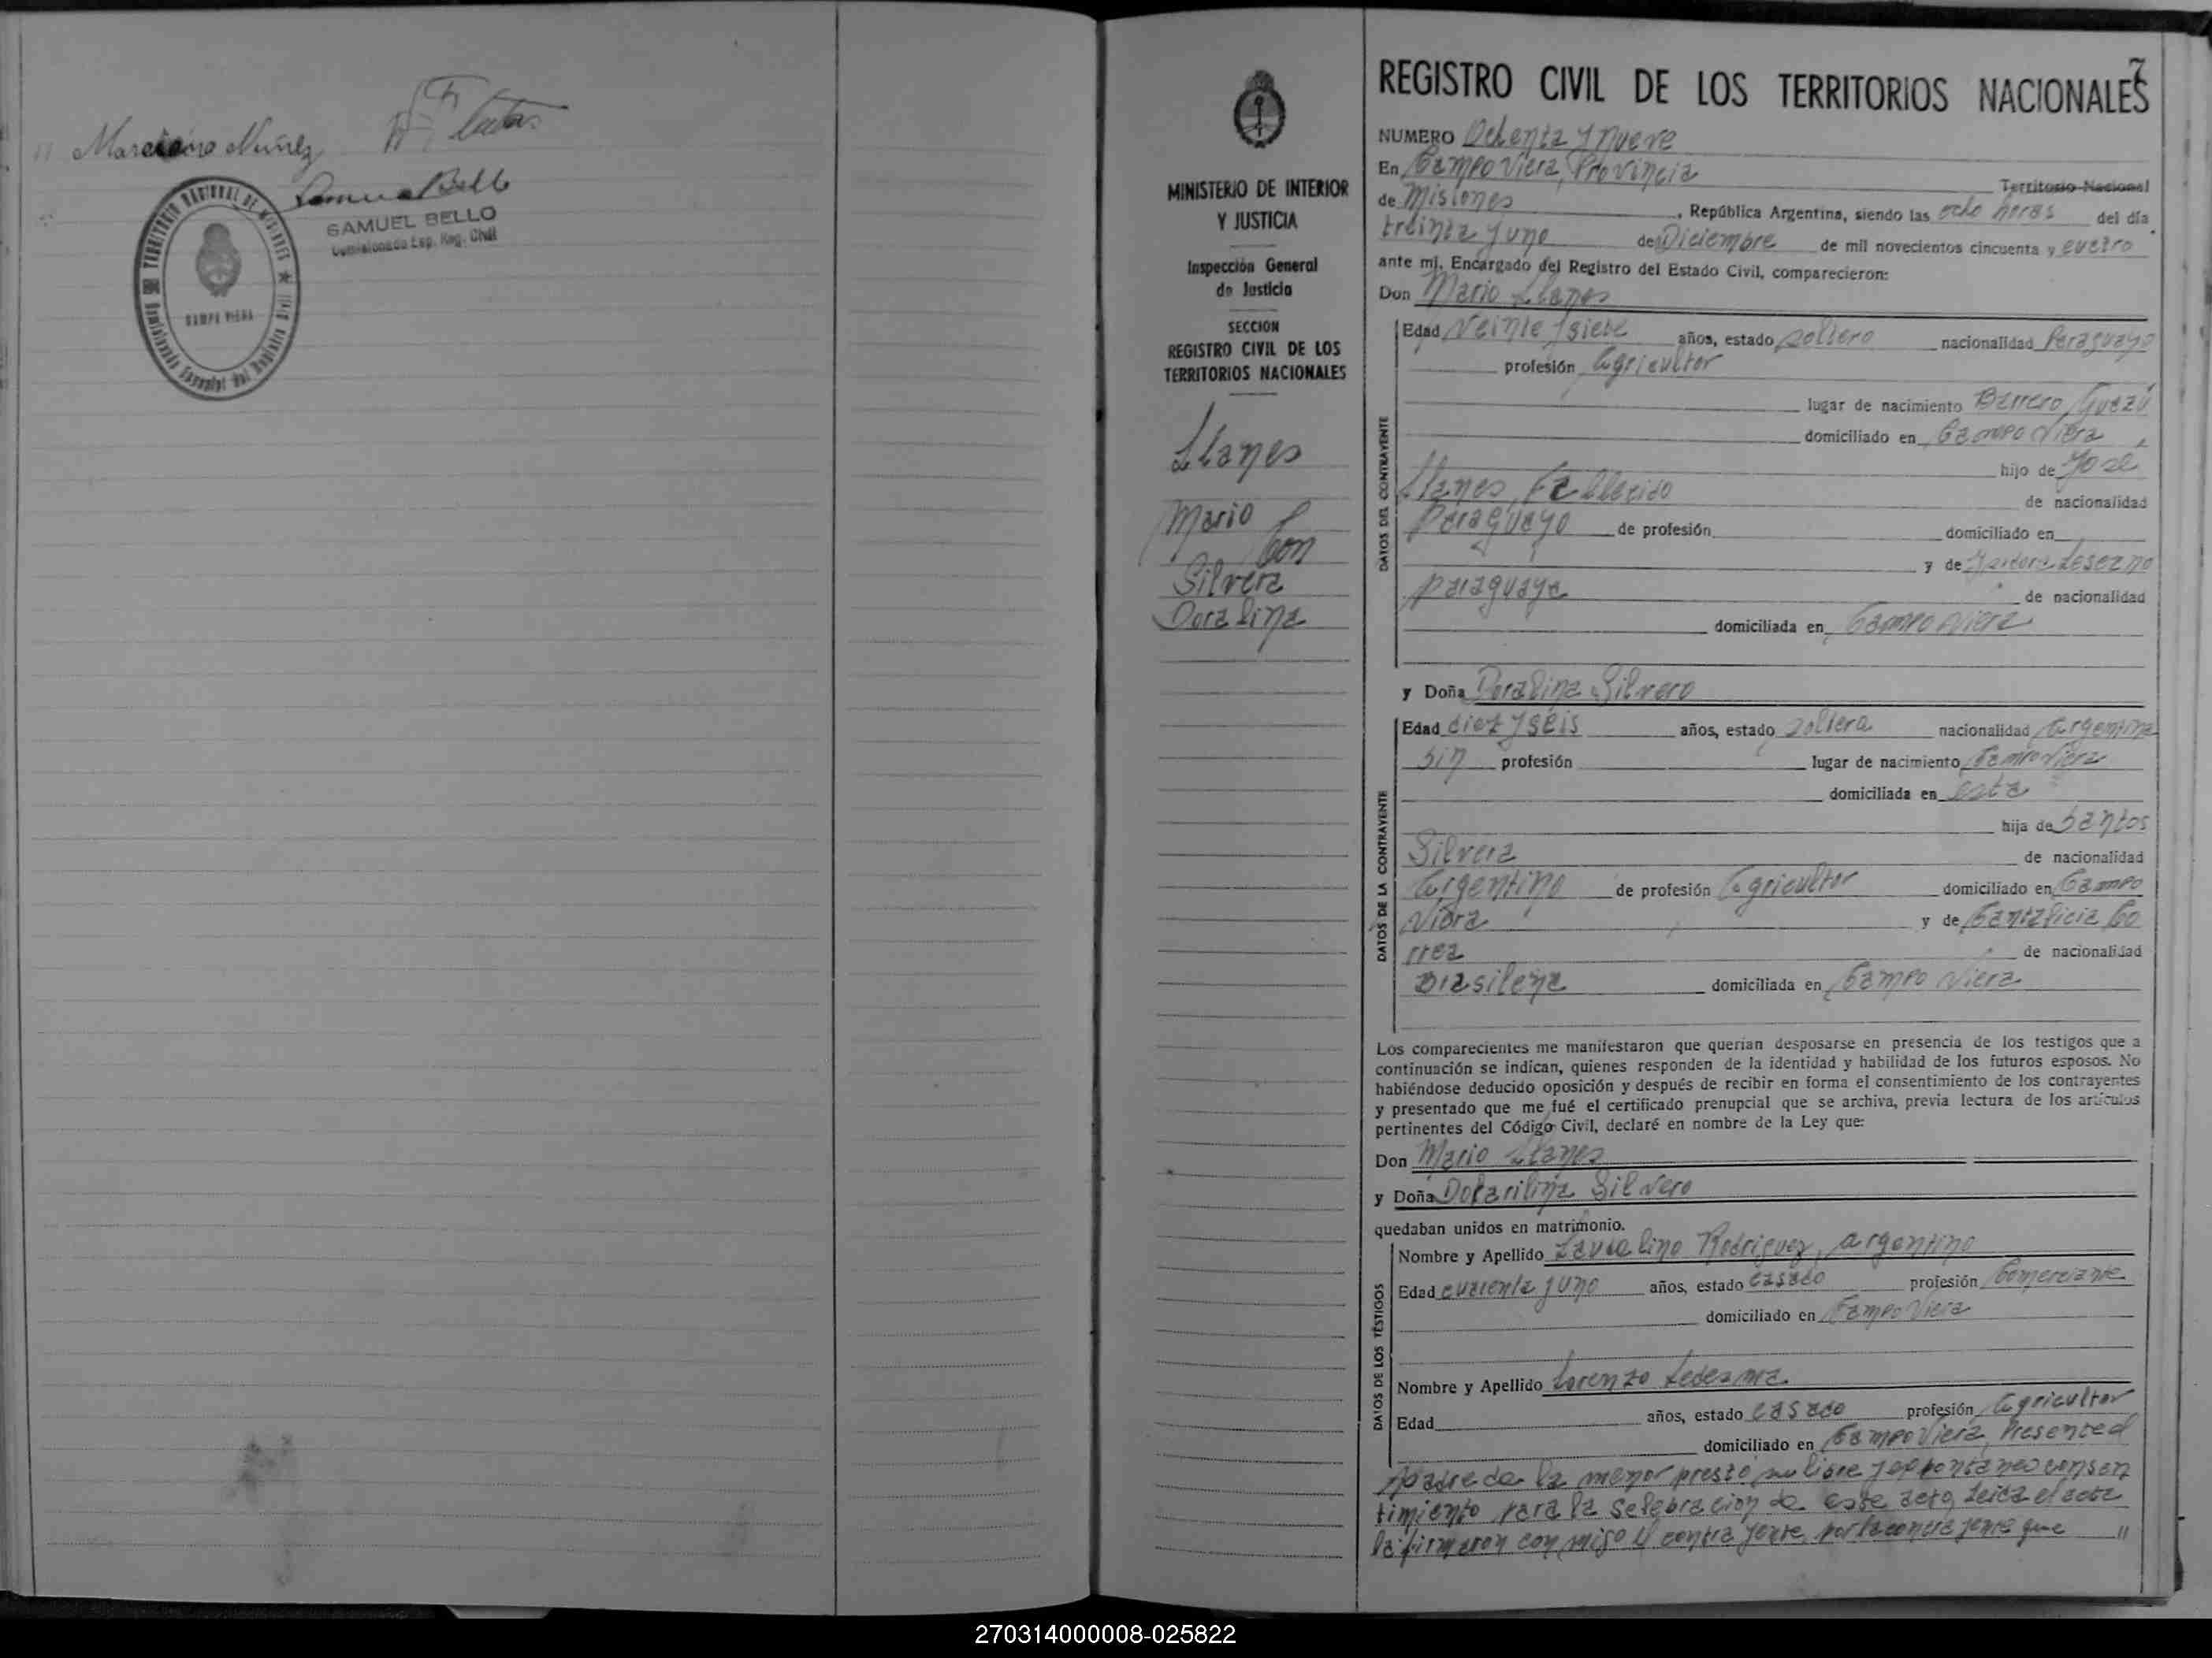 11 Marciano Nuñez
Samuel Bello
SAMUEL BELLO
Comisionado Esp. Reg. Civil
TERRITORIO NACIONAL DE MISIONES
CAMPO VIERA
MINISTERIO DE INTERIOR
Y JUSTICIA
Inspección General
de Justicia
SECCION
REGISTRO CIVIL DE LOS
TERRITORIOS NACIONALES
Llanes
Mario
Con
Silvera
Doralina
7
REGISTRO CIVIL DE LOS TERRITORIOS NACIONALES
NUMERO Ochenta y nueve
En Campo Viera, Provincia
Territorio Nacional
de Misiones, República Argentina, siendo las ocho horas del día
treinta y uno de Diciembre de mil novecientos cincuenta y cuatro
ante mí, Encargado del Registro del Estado Civil, comparecieron:
Don Mario Llanes
DATOS DEL CONTRAYENTE
Edad Veinte y siete años, estado soltero nacionalidad Paraguayo
profesión Agricultor
lugar de nacimiento Barrero Guazú
domiciliado en Campo Viera,
hijo de José
Llanes, Fallecido de nacionalidad
Paraguayo de profesión domiciliado en
y de Lescano
paraguaya de nacionalidad
domiciliada en Campo Viera
y Doña Doralina Silvero
DATOS DE LA CONTRAYENTE
Edad diez y seis años, estado soltera nacionalidad Argentina
sin profesión lugar de nacimiento Campo Viera
domiciliada en esta
hija de Santos
Silvera de nacionalidad
Argentino de profesión Agricultor domiciliado en Campo
Viera y de Cantaficia Co
rrea de nacionalidad
Brasileña domiciliada en Campo Viera
Los comparecientes me manifestaron que querían desposarse en presencia de los testigos que a
continuación se indican, quienes responden de la identidad y habilidad de los futuros esposos. No
habiéndose deducido oposición y después de recibir en forma el consentimiento de los contrayentes
y presentado que me fué el certificado prenupcial que se archiva, previa lectura de los artículos
pertinentes del Código Civil, declaré en nombre de la Ley que:
Don Mario Llanes
y Doña Dorarilina Silvero
quedaban unidos en matrimonio.
DATOS DE LOS TESTIGOS
Nombre y Apellido Laudalino Rodriguez, argentino
Edad cuarenta y uno años, estado casado profesión Comerciante
domiciliado en Campo Viera
Nombre y Apellido Lorenzo Ledesma
Edad años, estado casado profesión Agricultor
domiciliado en Campo Viera, Presente el
padre de la menor prestó su libre y espontaneo consen
timiento para la selebracion de este acto, Leida el acta
la firmaron con migo el contra yente, por la contra yente que 11
270314000008-025822